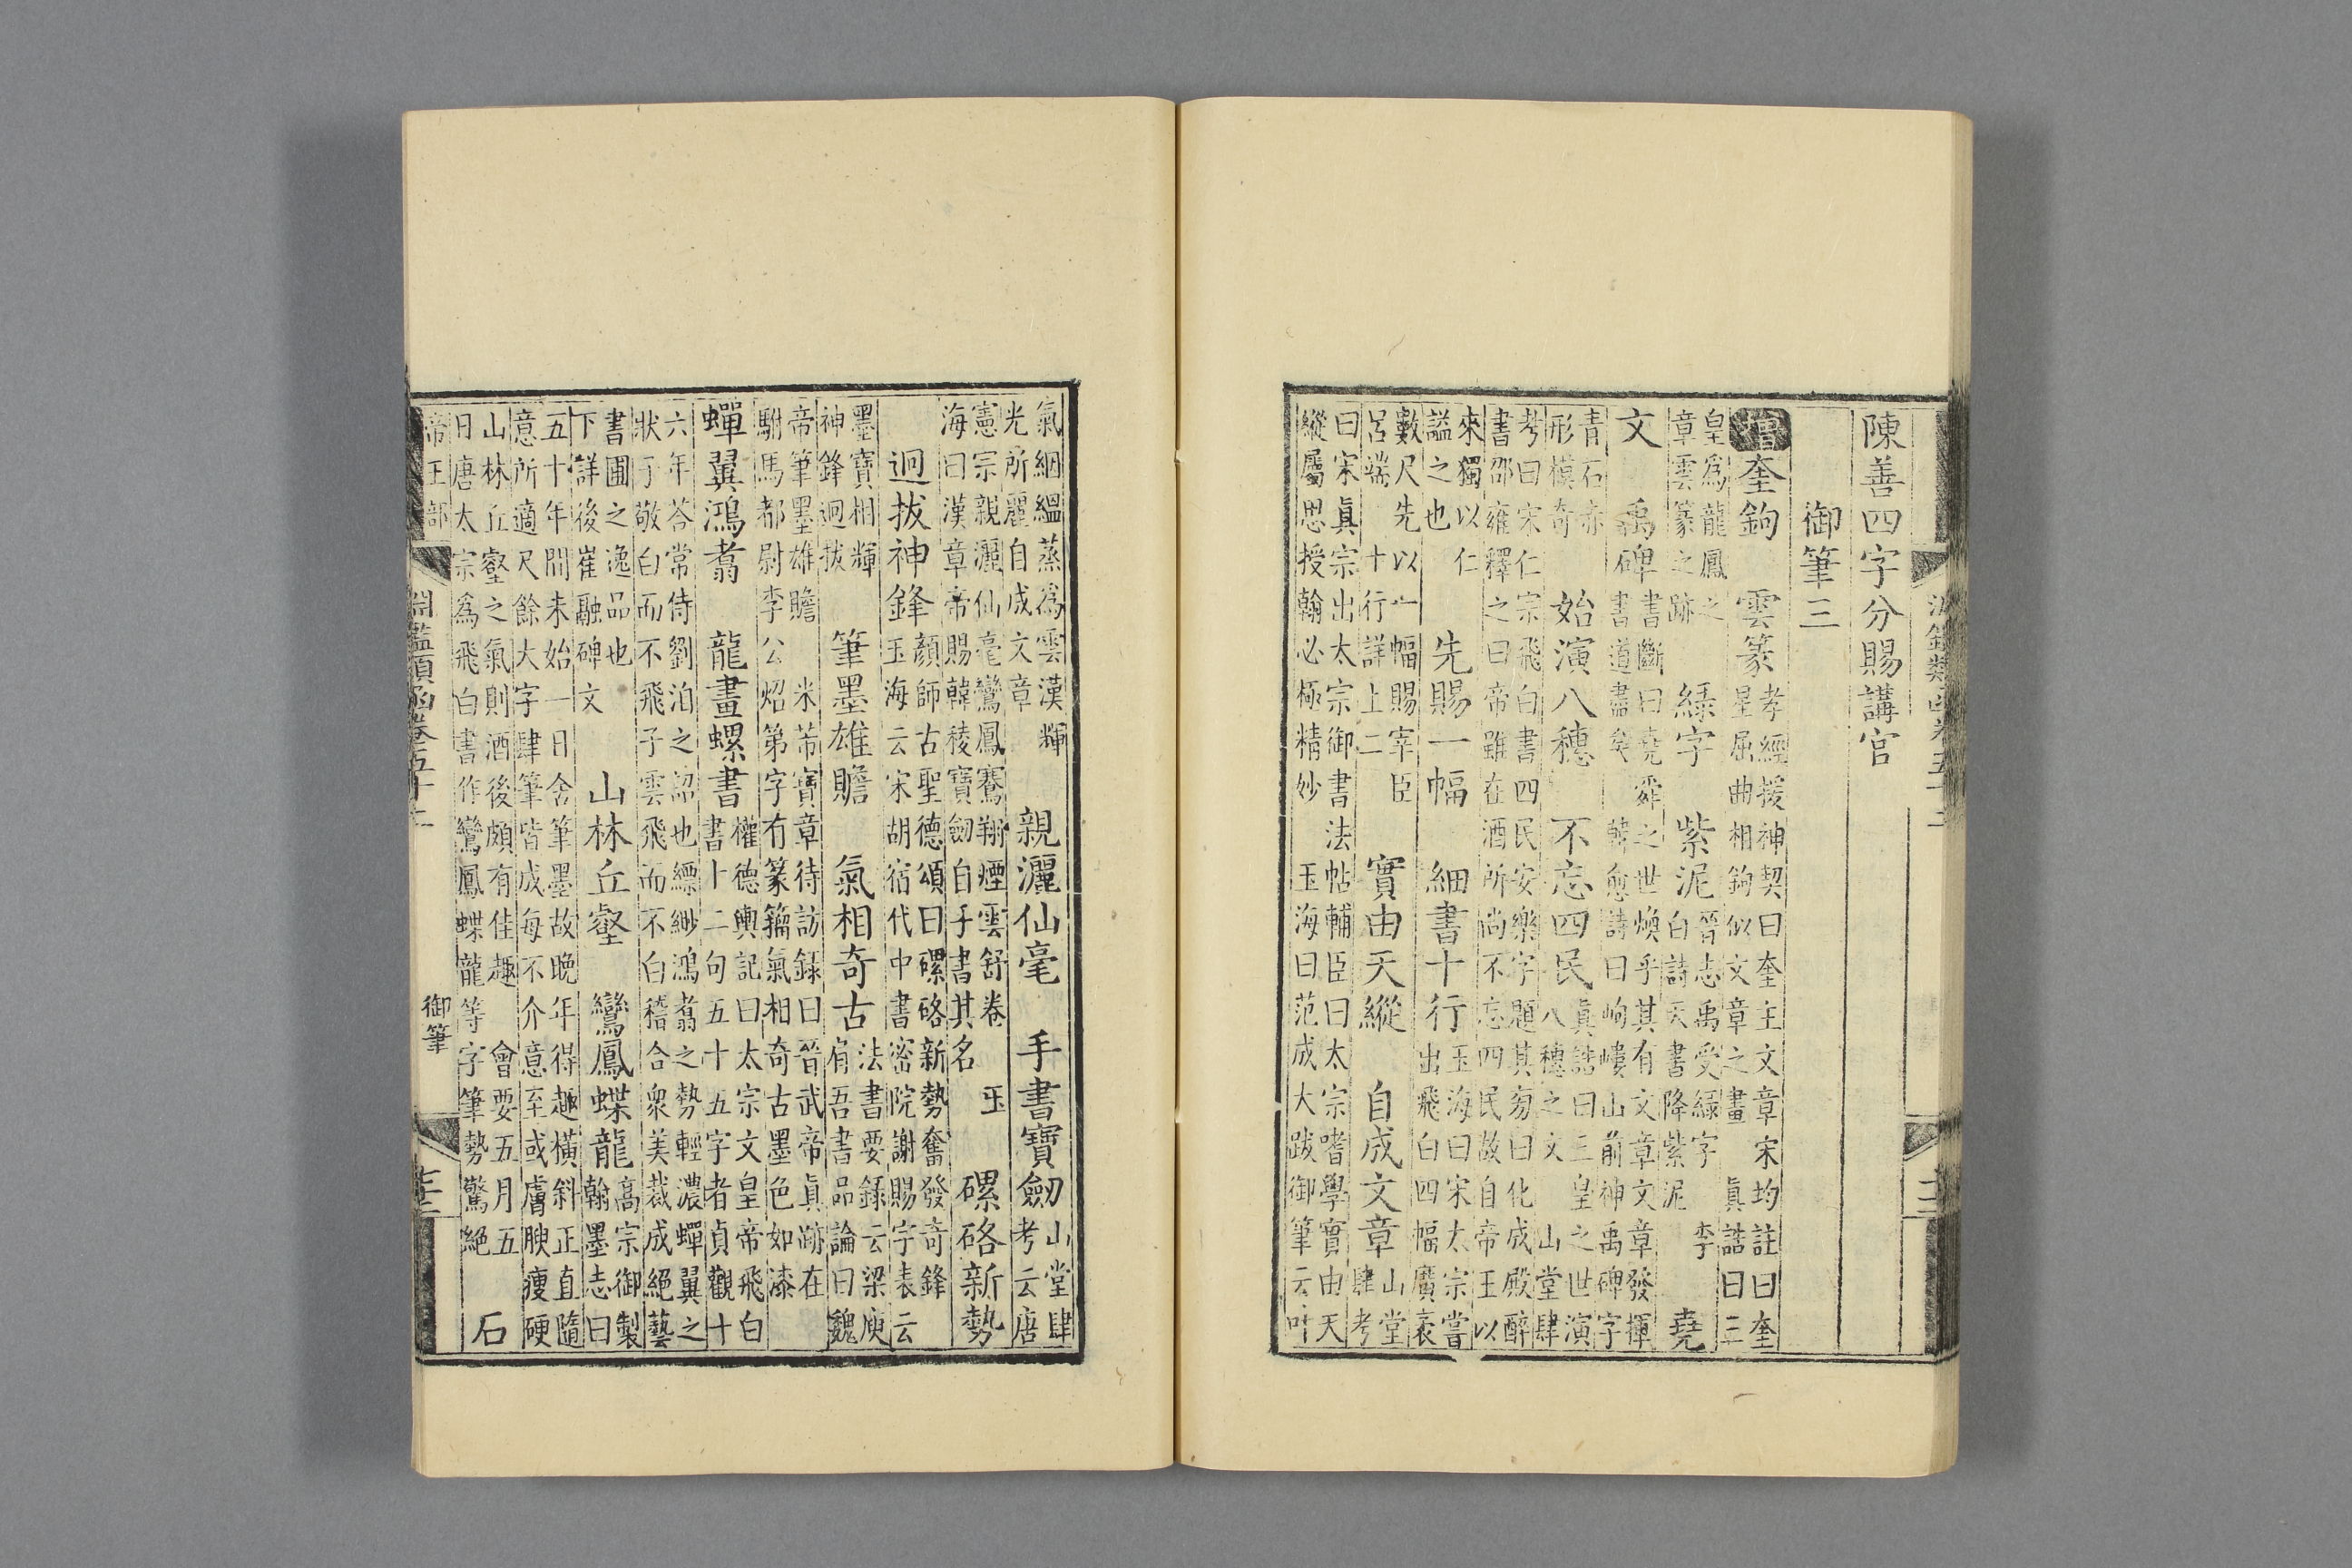 陳善四字分賜講官
御筆三
增奎鉤 雲篆
孝經援神契曰奎主文章宋均註曰奎
星屈曲相鉤似文章之畫 真誥曰三
皇爲龍鳳之
章雲篆之跡
綠字 紫泥
晉志禹受綠字 李
白詩天書降紫泥
堯
文 禹碑
書斷曰堯舜之世煥乎其有文章文章發揮
書道盡矣 韓愈詩曰岣嶁山前神禹碑字
青石赤
形模奇
始演八穗 不忘四民
真誥曰三皇之世演
八穗之文 山堂肆
考曰宋仁宗飛白書四民安樂字題其旁曰化成殿醉
書邵雍釋之曰帝雖在酒所尚不忘四民故自帝王以
來獨以仁
謚之也
先賜一幅 細書十行
玉海曰宋太宗嘗
出飛白四幅廣袤
數尺先以一幅賜宰臣
呂端 十行詳上二
實由天縱 自成文章
山堂
肆考
曰宋眞宗出太宗御書法帖輔臣曰太宗嗜學實由天
縱屬思授翰必極精妙 玉海曰范成大跋御筆云叶
氣絪縕蒸爲雲漢輝
光所麗自成文章
親灑仙毫 手書寶劒
山堂肆
考云唐
憲宗親灑仙毫鸞鳳騫翔煙雲舒卷 玉
海曰漢章帝賜韓稜寶劒自手書其名
磥硌新勢
迥拔神鋒
顏師古聖德頌曰磥硌新勢奮發奇鋒
玉海云宋胡宿代中書密院謝賜字表云
墨寶相輝
神鋒迥拔
筆墨雄贍 氣相奇古
法書要錄云梁庾
肩吾書品論曰魏
帝筆墨雄贍 米芾寶章待訪錄曰晉武帝眞跡在
駙馬都尉李公炤第字有篆籀氣相奇古墨色如漆
蟬翼鴻翥 龍畫螺書
權德輿記曰太宗文皇帝飛白
書十二句五十五字者貞觀十
六年答常侍劉洎之詔也縹緲鴻翥之勢輕濃蟬翼之
狀于敬白而不飛子雲飛而不白稽合衆美裁成絕藝
書圃之逸品也
下詳後崔融碑文
山林丘壑 鸞鳳蝶龍
高宗御製
翰墨志曰
五十年間未始一日舍筆墨故晚年得趣橫斜正直隨
意所適尺餘大字肆筆皆成每不介意至或膚腴瘦硬
山林丘壑之氣則酒後頗有佳趣 會要五月五
日唐太宗爲飛白書作鸞鳳蝶龍等字筆勢驚絕
石
帝王部 淵鑑類函卷五十二 御筆